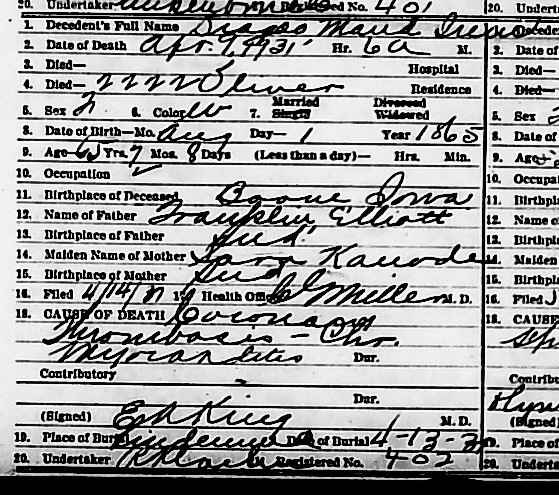 20. Undertaker Registered No. 401 20. Undertaker
1. Decedent's Full Name Maud 1. Decedent
2. Date of Death Apr. Hr. 6 a M. 2. Date of
3. Died— Hospital 3. Died—
4. Died— 2222 Oliver Residence 4. Died—
5. Sex F 6. Color W 7. Married Single Divorced Widowed 5. Sex
8. Date of Birth—Mo. Aug Day— 1 Year 1865 8. Date of
9. Age 65 Yrs. 7 Mos. 8 Days (Less than a day)— Hrs. Min. 9. Age
10. Occupation 10. Occupat
11. Birthplace of Deceased Boone Iowa 11. Birthpla
12. Name of Father Franklin Elliott 12. Name of
13. Birthplace of Father Ind. 13. Birthpla
14. Maiden Name of Mother Sara Maiden
15. Birthplace of Mother Ind 15. Birthpla
16. Filed 4/14/31 19 Health Officer Miller M. D. 16. Filed
18. CAUSE OF DEATH Coronary 18. CAUSE
Thrombosis - Chr.
Myocarditis Dur.
Contributory Contribu
Dur.
(Signed) E R King M. D. (Signed)
19. Place of Burial Date of Burial 4-13-31 19. Place of
20. Undertaker Registered No. 402 20. Underta